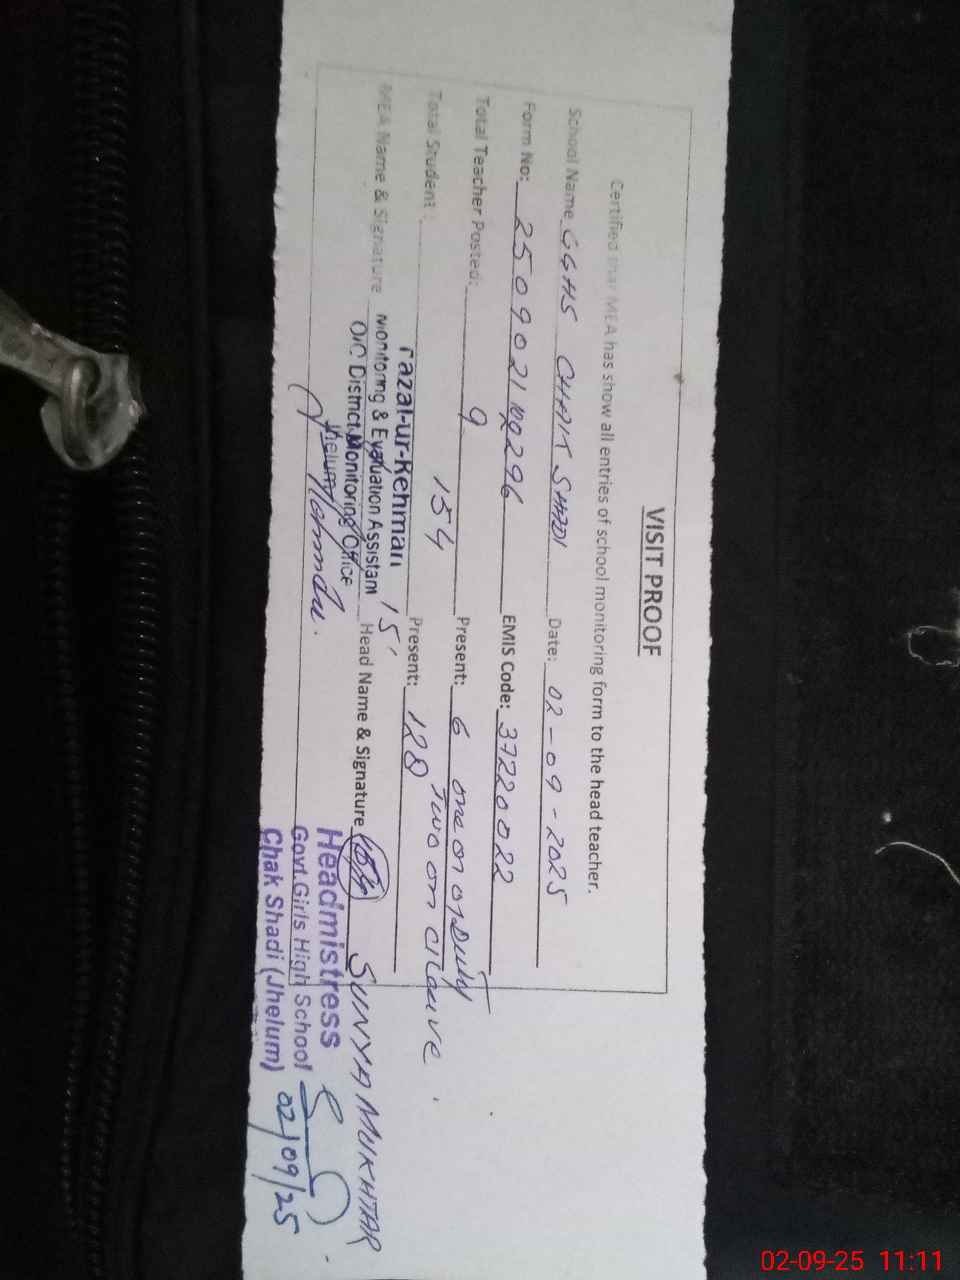 VISIT PROOF
Certified that MEA has show all entries of school monitoring form to the head teacher.
School Name GGHS CHAK SHADI Date: 02-09-2025
Form No: 250902109296 EMIS Code: 37220022
Total Teacher Posted: 9 Present: 6 one on Duty
Two on cleave.
Total Student: 154 Present: 128
MEA Name & Signature Head Name & Signature SUNYA MUKHTAR
Fazal-ur-Rehman
Monitoring & Evaluation Assistant
O/C District Monitoring Office
Jhelum
Headmistress
Govt.Girls High School
Chak Shadi (Jhelum)
02/09/25
02-09-25 11:11